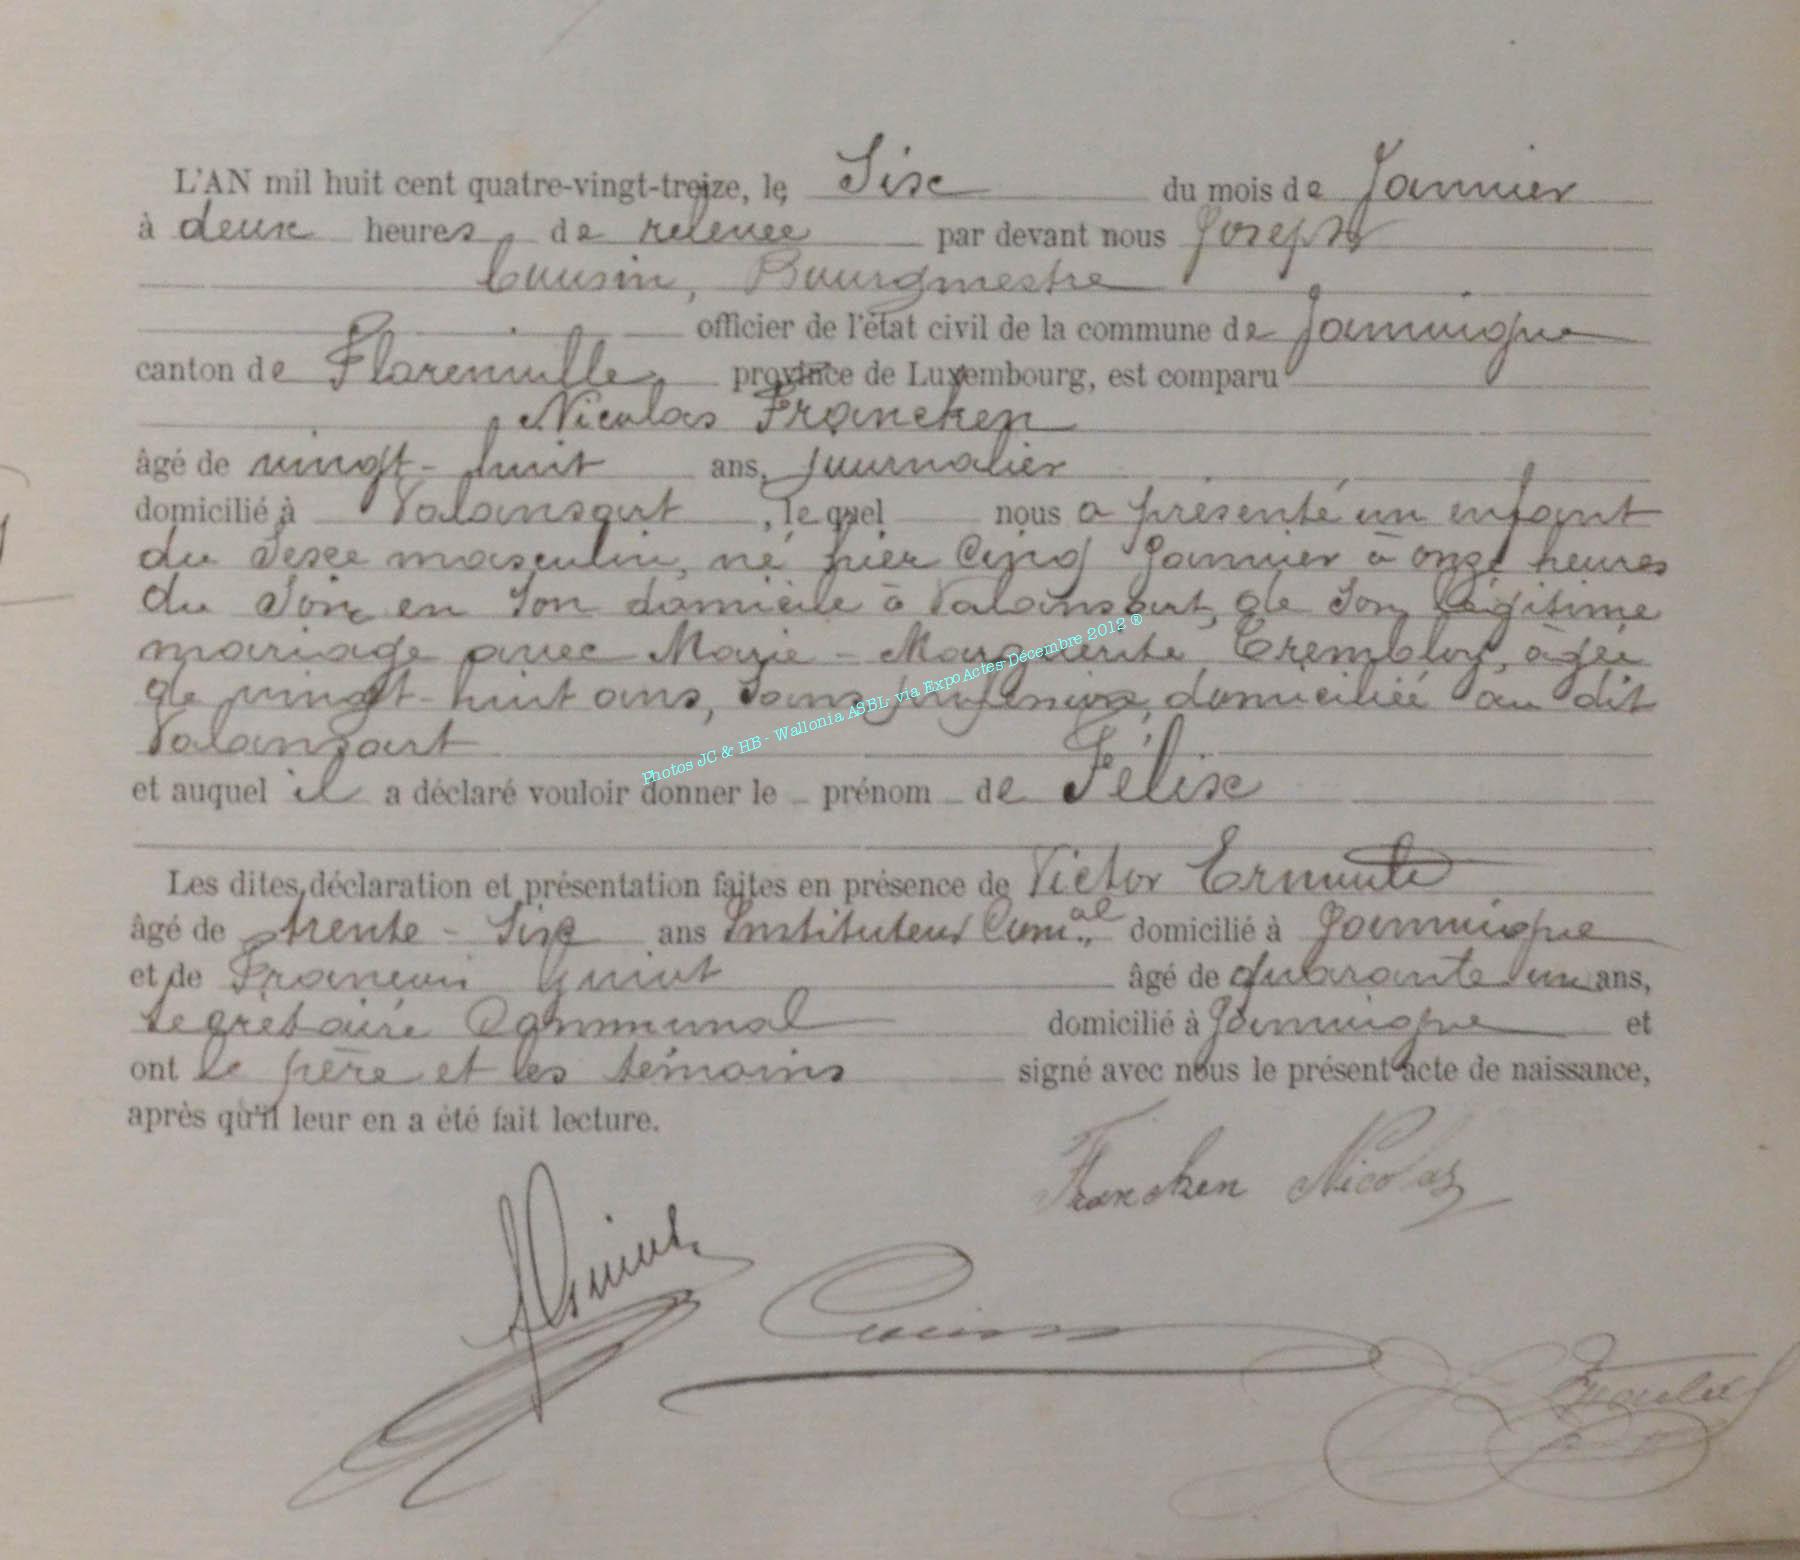 L'AN mil huit cent quatre-vingt-treize, le Six du mois de Janvier
à deux heures de relevée par devant nous Joseph
Cousin, Bourgmestre
officier de l'état civil de la commune de Jamoigne
canton de Florenville, province de Luxembourg, est comparu
Nicolas Francken
âgé de vingt-huit ans, journalier
domicilié à Valansart, lequel nous a présenté un enfant
du sexe masculin, né hier cinq Janvier à onze heures
du soir en son domicile à Valansart, de son légitime
mariage avec Marie-Marguerite Trembloy, âgée
de vingt-huit ans, sans profession, domiciliée au dit
Valansart
et auquel il a déclaré vouloir donner le prénom de Félix
Les dites déclaration et présentation faites en présence de Victor
âgé de trente-six ans Instituteur Com.al domicilié à Jamoigne
et de François Guiot âgé de quarante un ans,
secrétaire communal domicilié à Jamoigne et
ont le père et les témoins signé avec nous le présent acte de naissance,
après qu'il leur en a été fait lecture.
Francken Nicolas
Guiot
Cousin
Photos JC & HB - Wallonia ASBL- via ExpoActes-Décembre 2012 ®